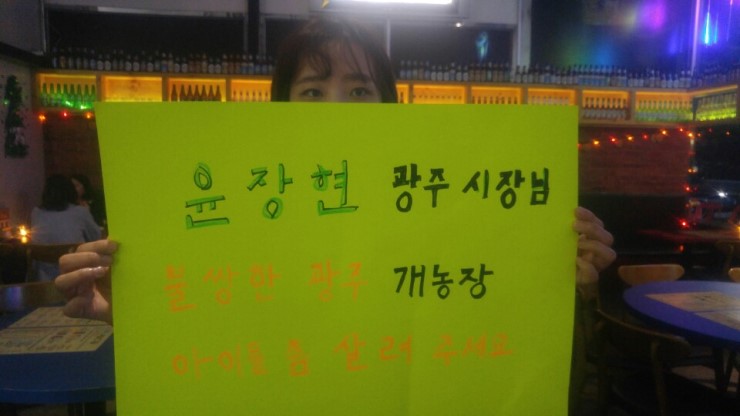 윤장현 광주 시장님
불쌍한 광주 개농장
아이들 좀 살려 주세요